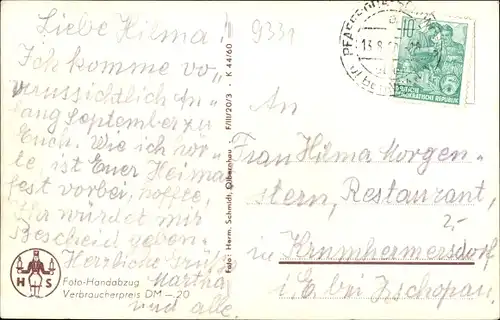 Liebe Hilma!
9331
Ich komme vo„
raussichtlich An„
fang September zu
Euch. Wie ich hör„
te, ist Euer Heimat
fest vorbei, hoffe,
Ihr würdet mir
Bescheid geben.
Herzliche Grüße
Martha
und alle.
H S
Foto-Handabzug
Verbraucherpreis DM —20
Foto: Herm. Schmidt, Olbernhau F/III/20/3 K 44/60
10
DEUTSCHE
DEMOKRATISCHE REPUBLIK
An
Frau Hilma Morgen„
stern, Restaurant,
2,-
in Krumhermersdorf
i. E. bei Zschopau.